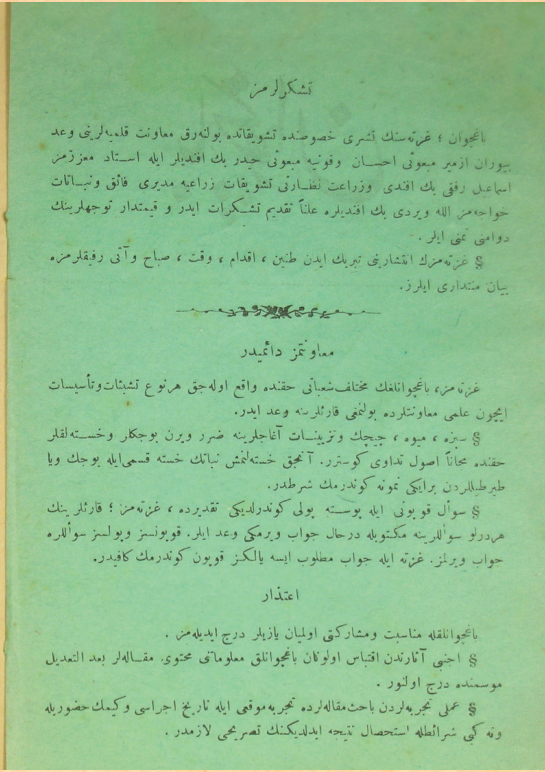 تشكرلرمز
باغچوان ؛ غزته‌سنك نشری خصوصنده تشویقاتده بولنه‌رق معاونت قلمیه‌لرینی وعد
بیوران ازمیر مبعوثی احسان وقونیه مبعوثی حیدر بك افندیلر ایله استاد معززمز
اسماعیل رفقی بك افندی وزراعت نظارتی تشویقات زراعیه مدیری فائق ونباتات
خواجه‌مز الله ویردی بك افندیلره علناً تقدیم تشكرات ایدر و قیمتدار توجهلرینك
دوامنی تمنی ایلر .
§ غزته‌مزك انتشارینی تبریك ایدن طنین ، اقدام ، وقت ، صباح وآتی رفیقلرمزه
بیان منتداری ایلرز.
معاونتمز دائمیدر
غزته‌مز، باغچوانلغك مختلف شعباتی حقنده واقع اوله‌جق هرنوع تشبثات وتأسیسات
ایچون علمی معاونتلرده بولنمغی قارئلرینه وعد ایدر.
§ سبزه ، میوه ، چیچك وتزیینات آغاجلرینه ضرر ویرن بوجكلر وخسته‌لقلر
حقنده مجاناً اصول تداوی كوسترر. آنجق خسته‌لنمش نباتك خسته قسمی‌ایله بوجك ویا
طیرطیللردن برایكی نمونه كوندرمك شرطدر.
§ سؤال قوپونی ایله پوسته پولی كوندرلدیكی تقدیرده ، غزته‌مز ؛ قارئلرینك
هردرلو سؤاللرینه مكتوبله درحال جواب ویرمكی وعد ایلر. قوپونسز وپولسز سؤاللره
جواب ویرلمز. غزته ایله جواب مطلوب ایسه یالكز قوپون كوندرمك كافیدر.
اعتذار
باغچوانلقله مناسبت ومشاركتی اولمیان یازیلر درج ایدیله‌مز .
§ اجنبی آثارندن اقتباس اولونان باغچوانلق معلوماتی محتوی مقاله‌لر بعد التعدیل
موسمنده درج اولنور .
§ عملی تجربه‌لردن باحث مقاله‌لرده تجربه موقعی ایله تاریخ اجراسی وكیمك حضوریله
ونه كبی شرائطله استحصال نتیجه ایدلدیكنك تصریحی لازمدر .